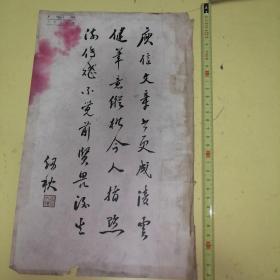 庾信文章老更成凌雲
健筆意縱橫今人指點
流傳賦不覺前賢畏後生
紉秋